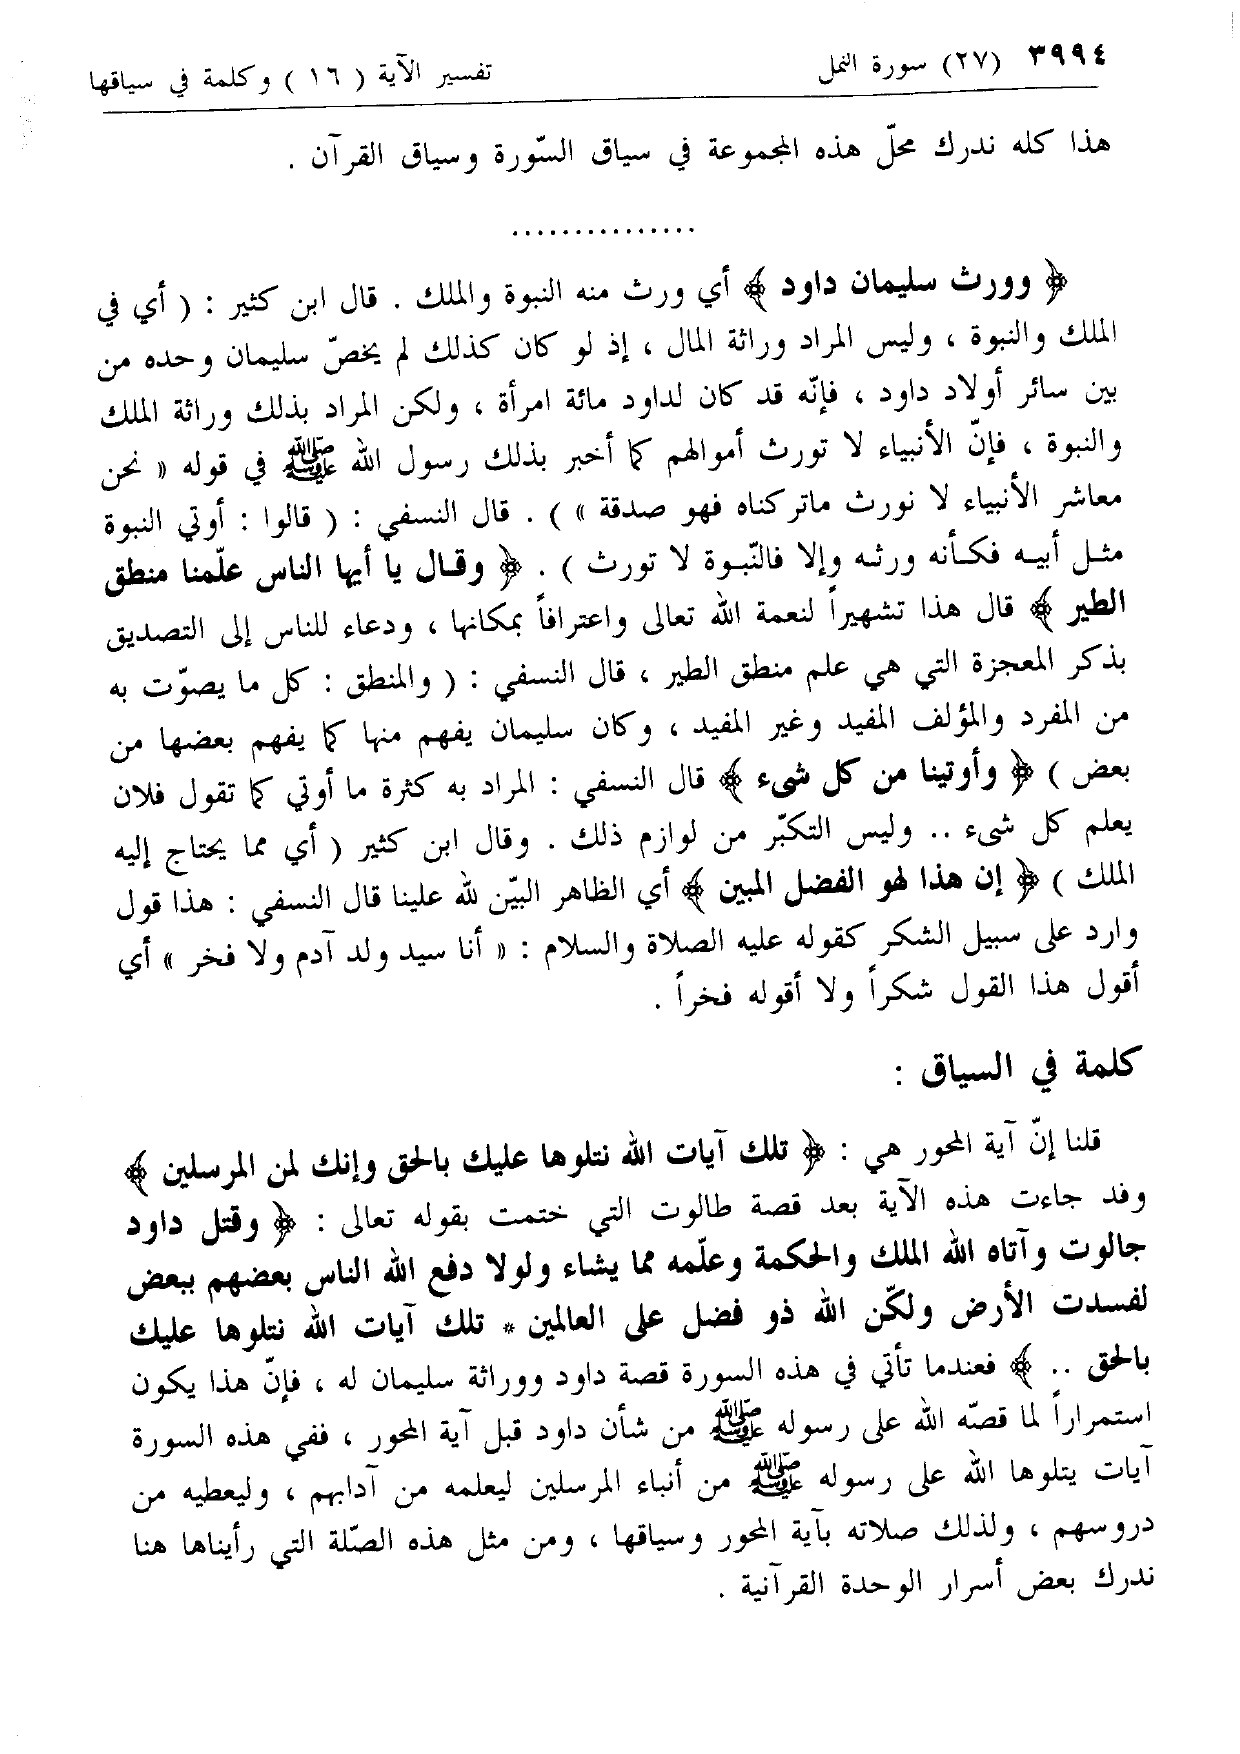 ٣٩٩٤ (٢٧) سورة النمل تفسير الآية ( ١٦ ) وكلمة في سياقها
هذا كله ندرك محلّ هذه المجموعة في سياق السّورة وسياق القرآن .
...............
﴿ وورث سليمان داود ﴾ أي ورث منه النبوة والملك . قال ابن كثير : ( أي في
الملك والنبوة ، وليس المراد وراثة المال ، إذ لو كان كذلك لم يخصّ سليمان وحده من
بين سائر أولاد داود ، فإنّه قد كان لداود مائة امرأة ، ولكن المراد بذلك وراثة الملك
والنبوة ، فإنّ الأنبياء لا تورث أموالهم كما أخبر بذلك رسول الله ﷺ في قوله « نحن
معاشر الأنبياء لا نورث ماتركناه فهو صدقة » ) . قال النسفي : ( قالوا : أوتي النبوة
مثل أبيه فكأنه ورثه وإلا فالنّبوة لا تورث ) . ﴿ وقال يا أيها الناس علّمنا منطق
الطير ﴾ قال هذا تشهيراً لنعمة الله تعالى واعترافاً بمكانها ، ودعاء للناس إلى التصديق
بذكر المعجزة التي هي علم منطق الطير ، قال النسفي : ( والمنطق : كل ما يصوّت به
من المفرد والمؤلف المفيد وغير المفيد ، وكان سليمان يفهم منها كما يفهم بعضها من
بعض ) ﴿ وأوتينا من كل شيء ﴾ قال النسفي : المراد به كثرة ما أوتي كما تقول فلان
يعلم كل شيء .. وليس التكبّر من لوازم ذلك . وقال ابن كثير ( أي مما يحتاج إليه
الملك ) ﴿ إن هذا لهو الفضل المبين ﴾ أي الظاهر البيّن لله علينا قال النسفي : هذا قول
وارد على سبيل الشكر كقوله عليه الصلاة والسلام : « أنا سيد ولد آدم ولا فخر » أي
أقول هذا القول شكراً ولا أقوله فخراً .
كلمة في السياق :
قلنا إنّ آية المحور هي : ﴿ تلك آيات الله نتلوها عليك بالحق وإنك لمن المرسلين ﴾
وقد جاءت هذه الآية بعد قصة طالوت التي ختمت بقوله تعالى : ﴿ وقتل داود
جالوت وآتاه الله الملك والحكمة وعلّمه مما يشاء ولولا دفع الله الناس بعضهم ببعض
لفسدت الأرض ولكّن الله ذو فضل على العالمين * تلك آيات الله نتلوها عليك
بالحق .. ﴾ فعندما تأتي في هذه السورة قصة داود ووراثة سليمان له ، فإنّ هذا يكون
استمراراً لما قصّه الله على رسوله ﷺ من شأن داود قبل آية المحور ، ففي هذه السورة
آيات يتلوها الله على رسوله ﷺ من أنباء المرسلين ليعلمه من آدابهم ، وليعطيه من
دروسهم ، ولذلك صلاته بآية المحور وسياقها ، ومن مثل هذه الصّلة التي رأيناها هنا
ندرك بعض أسرار الوحدة القرآنية .